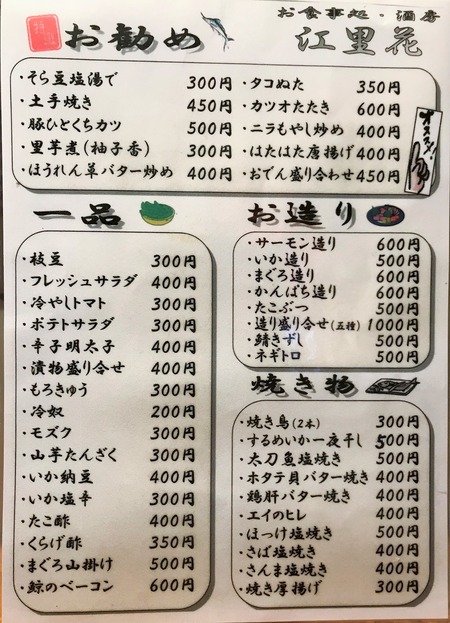 お食事処・酒房
江里花
お勧め
・そら豆塩湯で 300円
・土手焼き 450円
・豚ひとくちカツ 500円
・里芋煮(柚子香) 300円
・ほうれん草バター炒め 400円
・タコぬた 350円
・カツオたたき 600円
・ニラもやし炒め 400円
・はたはた唐揚げ 400円
・おでん盛り合わせ 450円
オススメ!
一品
・枝豆 300円
・フレッシュサラダ 400円
・冷やしトマト 300円
・ポテトサラダ 300円
・辛子明太子 400円
・漬物盛り合せ 400円
・もろきゅう 300円
・冷奴 200円
・モズク 300円
・山芋たんざく 300円
・いか納豆 400円
・いか塩辛 300円
・たこ酢 400円
・くらげ酢 350円
・まぐろ山掛け 500円
・鯨のベーコン 600円
お造り
・サーモン造り 600円
・いか造り 500円
・まぐろ造り 600円
・かんぱち造り 600円
・たこぶつ 500円
・造り盛り合せ(五種) 1000円
・鯖きずし 500円
・ネギトロ 500円
焼き物
・焼き鳥(2本) 300円
・するめいか一夜干し 500円
・太刀魚塩焼き 500円
・ホタテ貝バター焼き 400円
・鶏肝バター焼き 400円
・エイのヒレ 400円
・ほっけ塩焼き 500円
・さば塩焼き 400円
・さんま塩焼き 400円
・焼き厚揚げ 300円